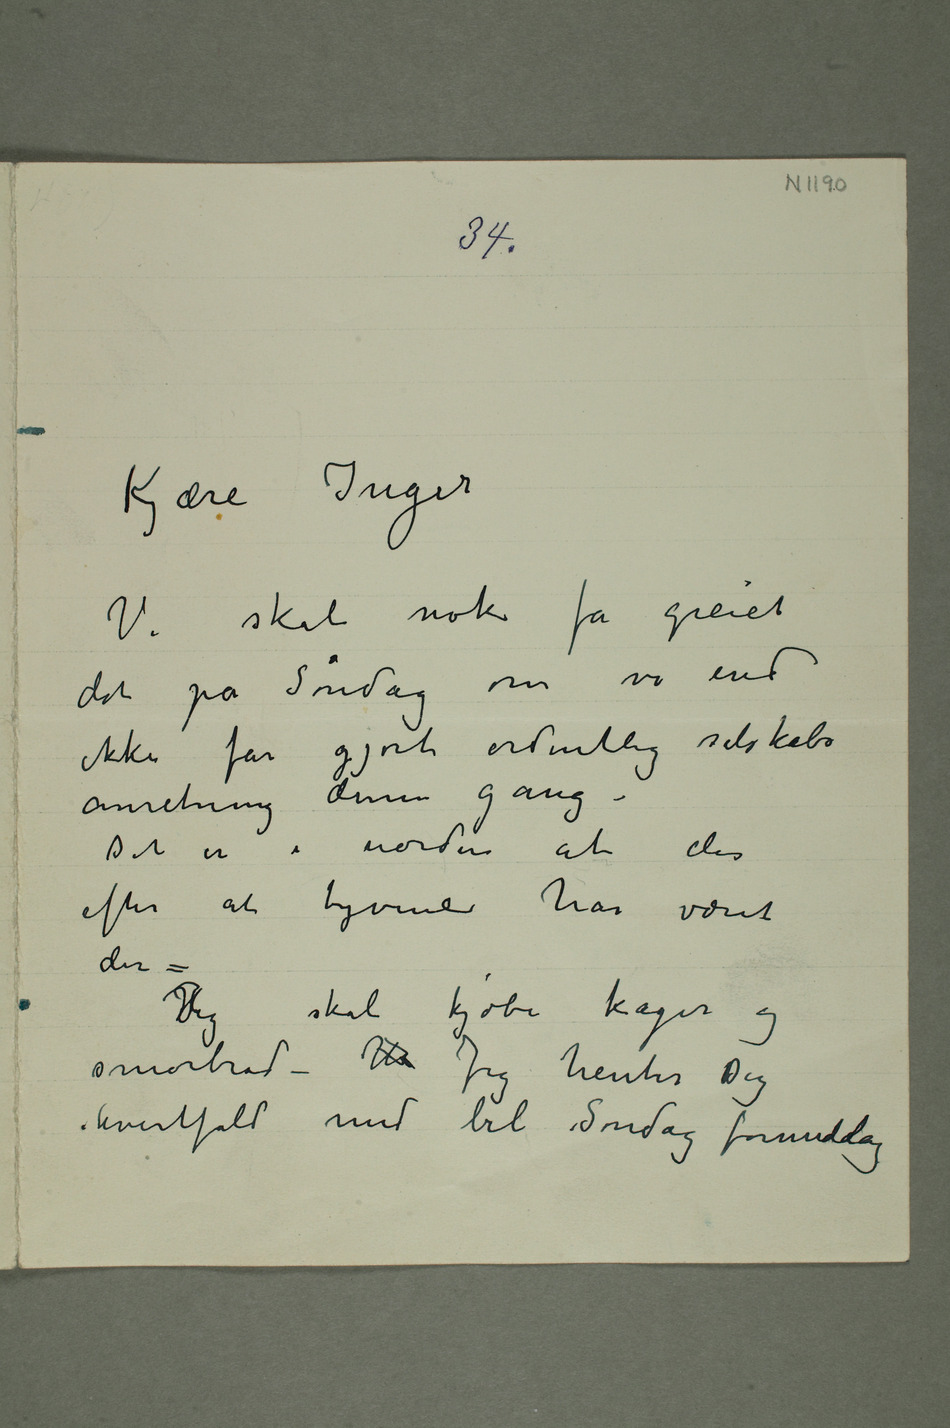 N 1190
34.
Kjære Inger
Vi skal nok få greiet
det på Søndag om vi end
ikke får gjort ordentlig selskabs
anretning denne gang –
Det er i uorden at der
efter at tyvene har været
der =
Jeg skal kjøbe kager og
smørbrød – Jeg henter Dig
ihvertfald med bil Søndag formiddag